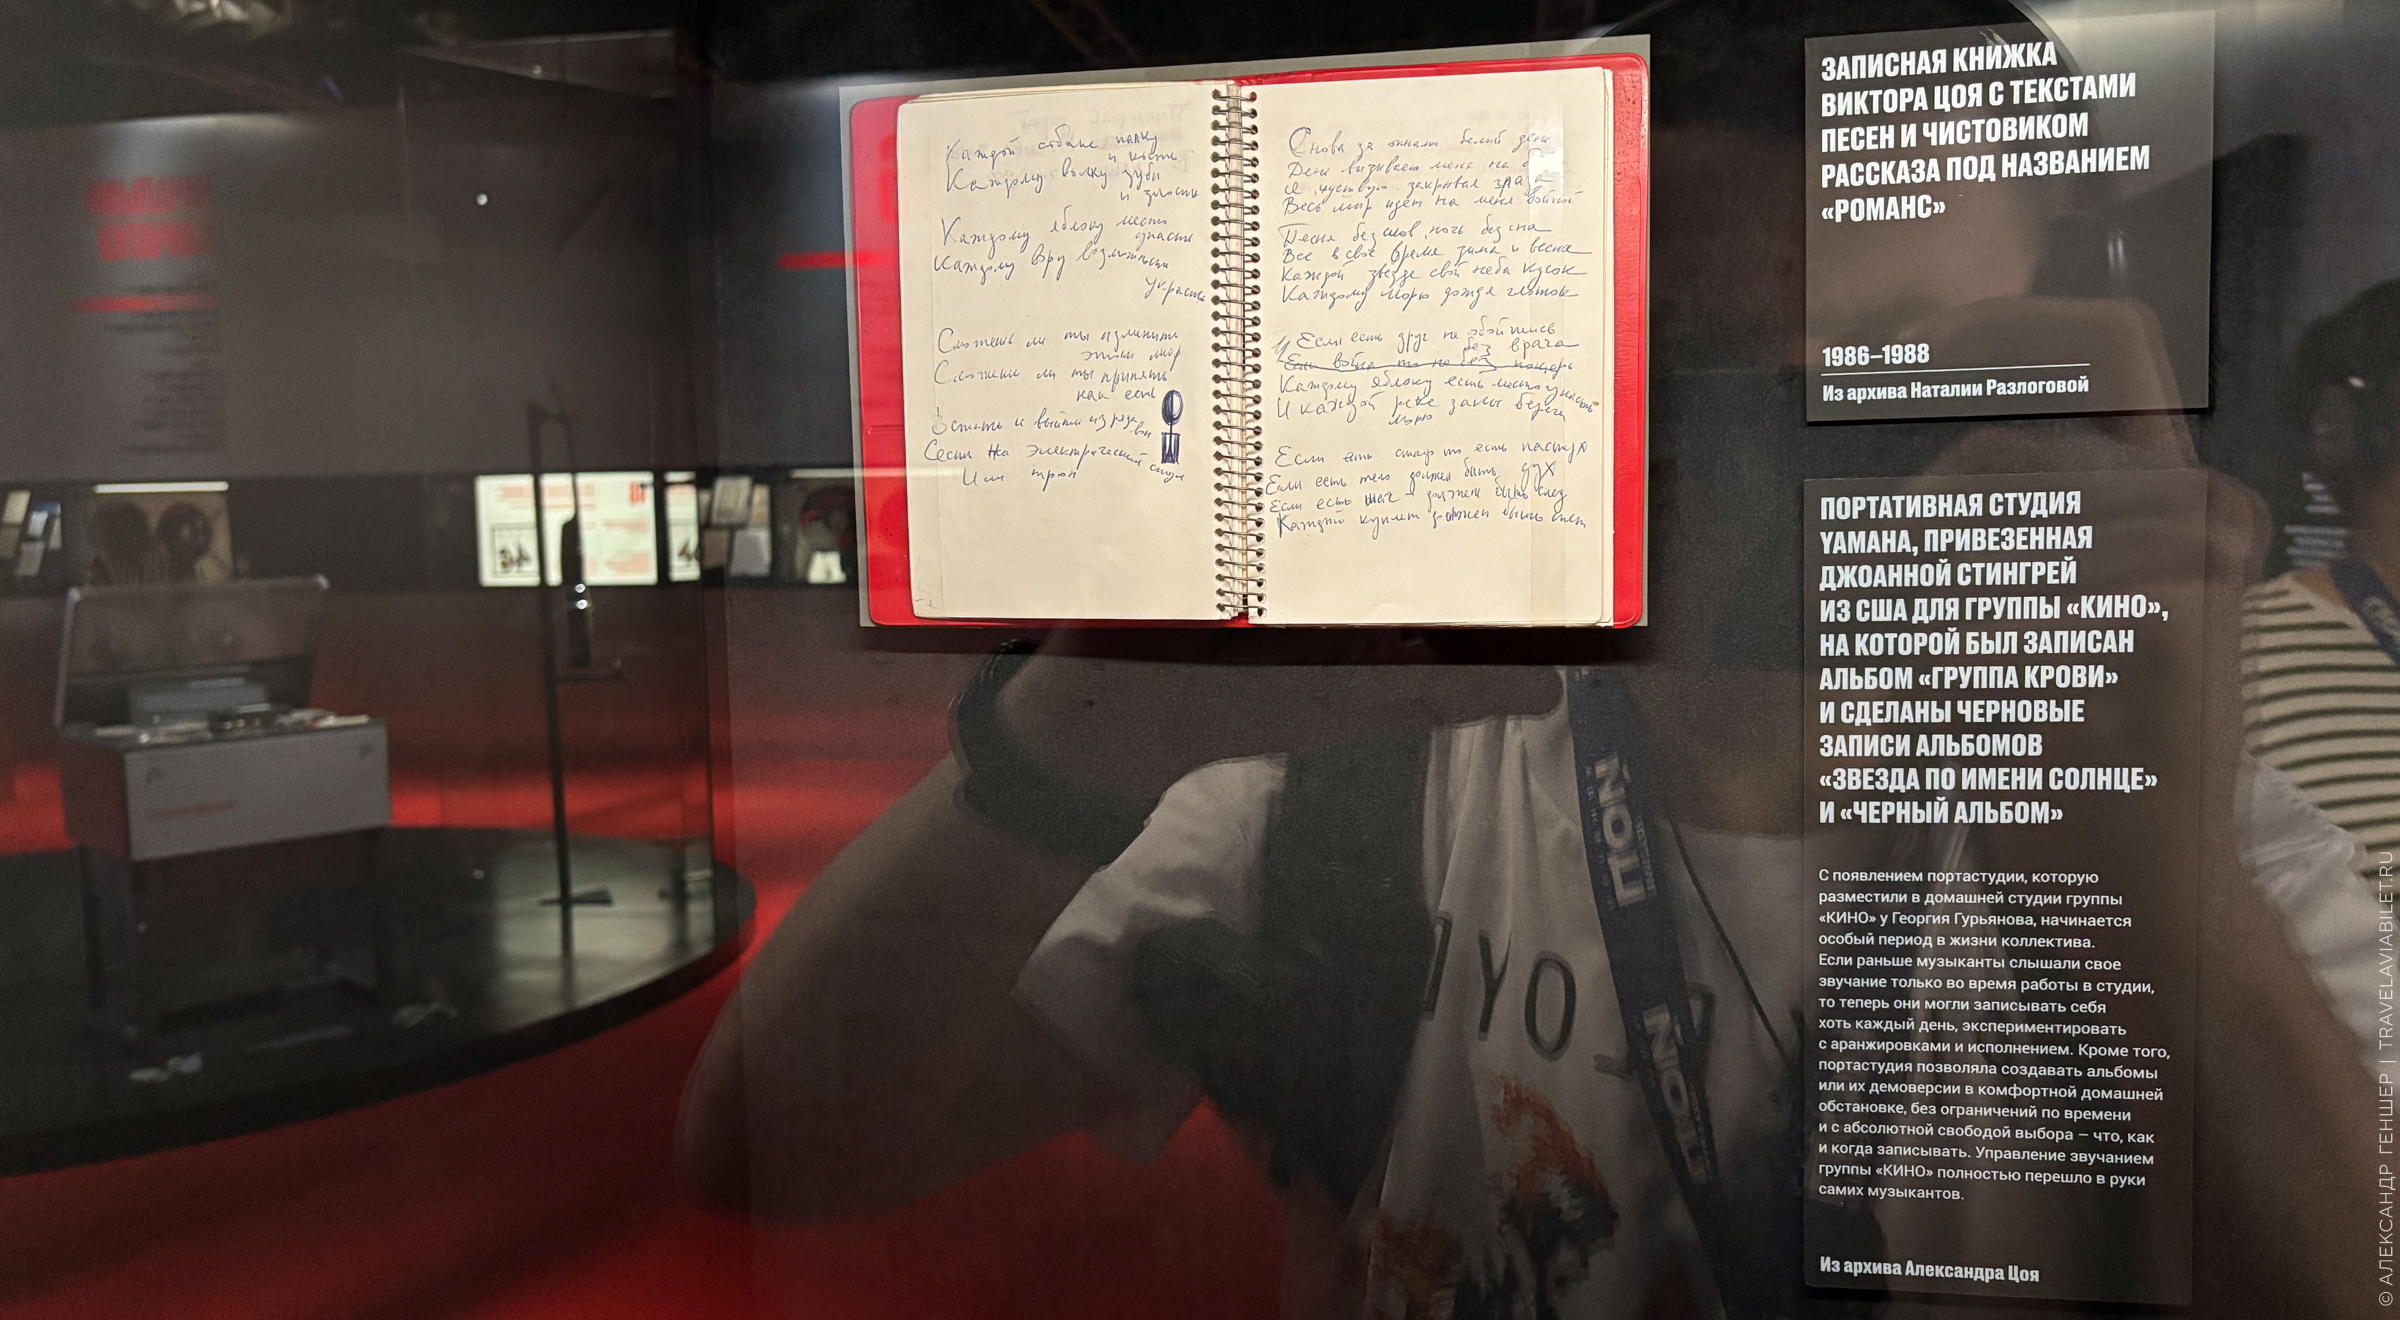 Каждой собаке палку
и кость
Каждому волку зубы
и злость
Каждому яблоку место
упасть
Каждому вору возможность
украсть
Сможешь ли ты изменить
этот мир
Сможешь ли ты принять
как есть
Встать и выйти из ряда
вон
Сесть на электрический стул
Или трон
Снова за окнами белый день
День вызывает меня на
Я чуствую закрывая глаза
Весь мир идет на меня войной
Песня без слов, ночь без сна
Все в свое время зима и весна
Каждой звезде свой неба кусок
Каждому морю дождя глоток
Если есть
без врача
Если война то не без
Каждому яблоку есть место упасть
И каждой реке
морю
Если есть стадо то есть пастух
Если есть тело должен быть дух
Если есть шаг – должен быть след
Каждой куплет должен быть спет
ЗАПИСНАЯ КНИЖКА
ВИКТОРА ЦОЯ С ТЕКСТАМИ
ПЕСЕН И ЧИСТОВИКОМ
РАССКАЗА ПОД НАЗВАНИЕМ
«РОМАНС»
1986–1988
Из архива Наталии Разлоговой
ПОРТАТИВНАЯ СТУДИЯ
YAMAHA, ПРИВЕЗЕННАЯ
ДЖОАННОЙ СТИНГРЕЙ
ИЗ США ДЛЯ ГРУППЫ «КИНО»,
НА КОТОРОЙ БЫЛ ЗАПИСАН
АЛЬБОМ «ГРУППА КРОВИ»
И СДЕЛАНЫ ЧЕРНОВЫЕ
ЗАПИСИ АЛЬБОМОВ
«ЗВЕЗДА ПО ИМЕНИ СОЛНЦЕ»
И «ЧЕРНЫЙ АЛЬБОМ»
С появлением портастудии, которую
разместили в домашней студии группы
«КИНО» у Георгия Гурьянова, начинается
особый период в жизни коллектива.
Если раньше музыканты слышали свое
звучание только во время работы в студии,
то теперь они могли записывать себя
хоть каждый день, экспериментировать
с аранжировками и исполнением. Кроме того,
портастудия позволяла создавать альбомы
или их демоверсии в комфортной домашней
обстановке, без ограничений по времени
и с абсолютной свободой выбора – что, как
и когда записывать. Управление звучанием
группы «КИНО» полностью перешло в руки
самих музыкантов.
Из архива Александра Цоя
ЦОЙ
ЦОЙ
© АЛЕКСАНДР ГЕНШЕР | TRAVELAVIABILET.RU